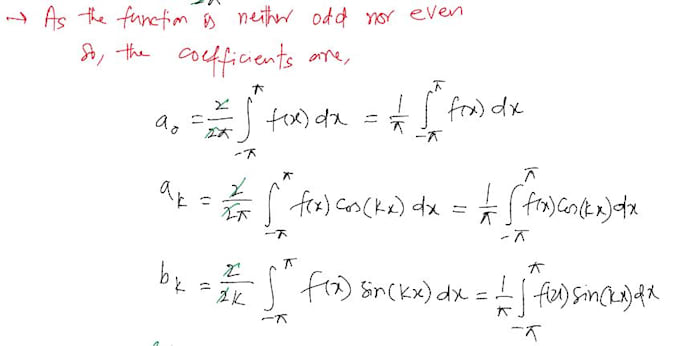 → As the function is neither odd nor even
So, the coefficients are,
a₀ = 2/2π ∫_{-π}^{π} f(x) dx = 1/π ∫_{-π}^{π} f(x) dx
a_k = 2/2π ∫_{-π}^{π} f(x) cos(kx) dx = 1/π ∫_{-π}^{π} f(x) cos(kx) dx
b_k = 2/2K ∫_{-π}^{π} f(x) sin(kx) dx = 1/π ∫_{-π}^{π} f(x) sin(kx) dx